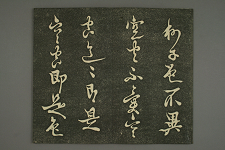 利子色不異
空空不異
色〻即是
空空即是色